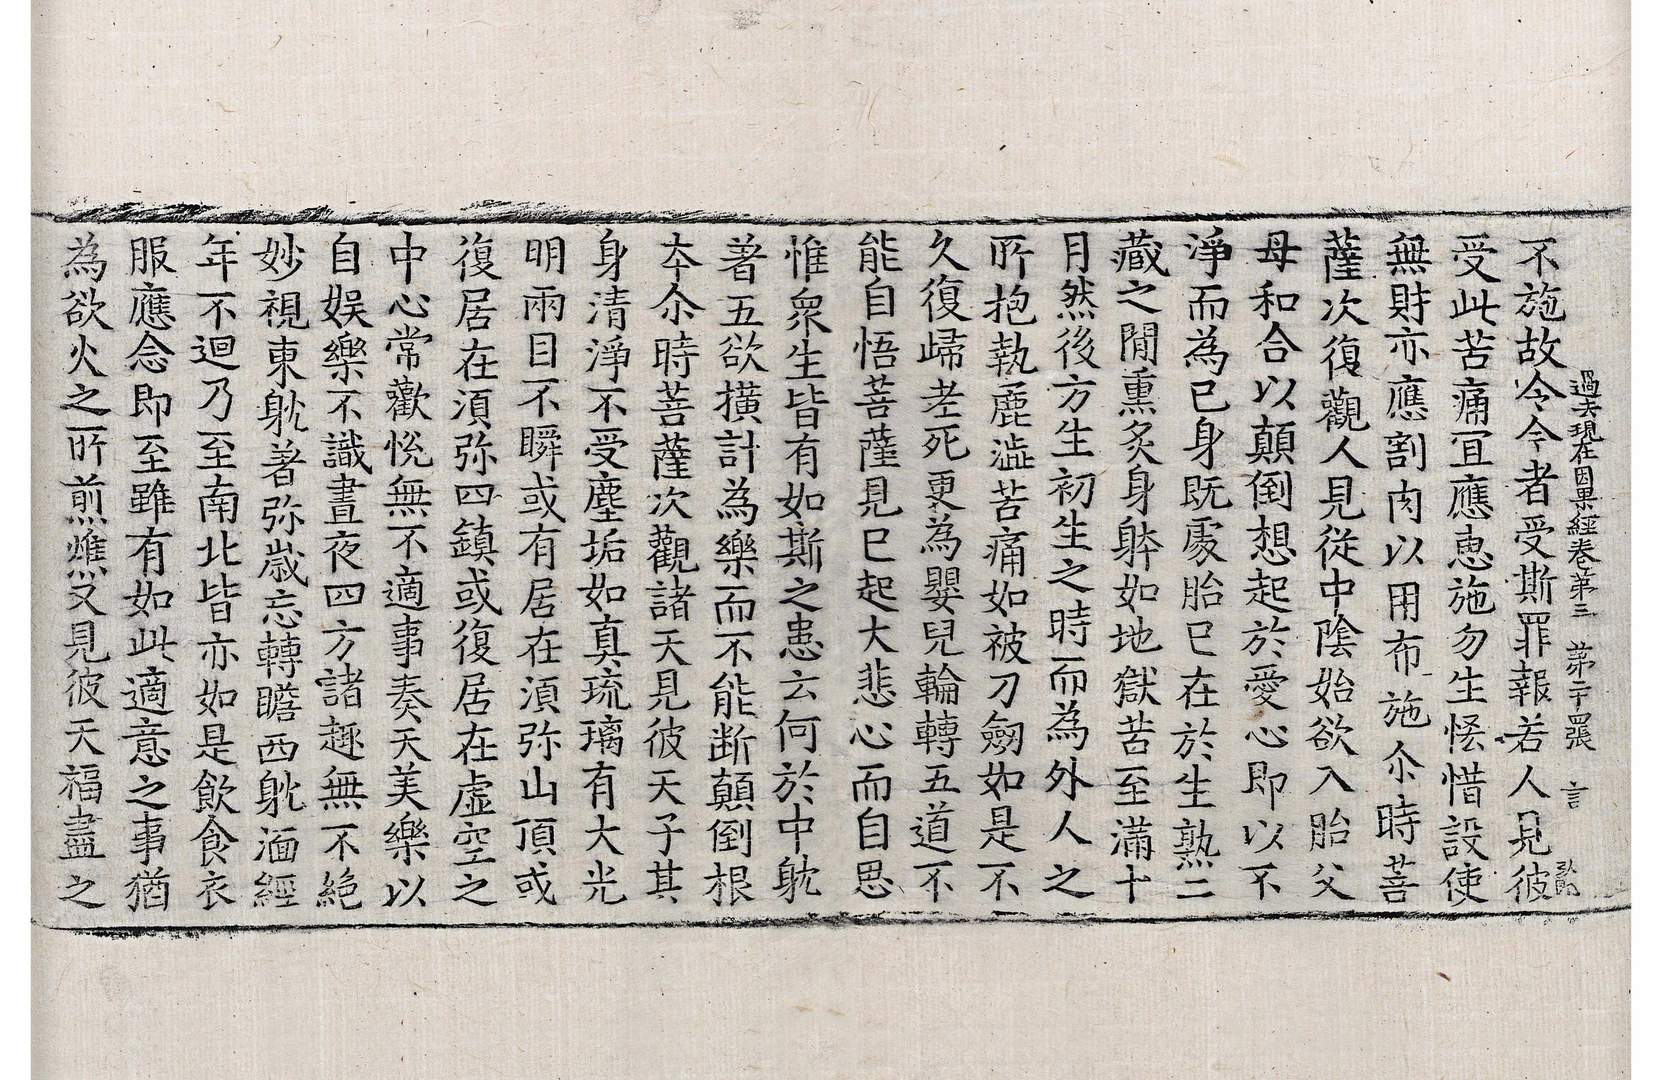 過去現在因果經卷苐三 苐二十罒張 言
不施故令今者受斯罪報若人見彼
受此苦痛冝應恵施勿生恡惜設使
無財亦應割肉以用布施尒時菩
薩次復觀人見從中隂始欲入胎父
母和合以顛倒想起於愛心即以不
淨而為已身既處胎已在於生熟二
藏之閒熏炙身躰如地獄苦至滿十
月然後方生初生之時而為外人之
所抱執麁澁苦痛如被刀劒如是不
久復歸老死更為嬰兒輪轉五道不
能自悟菩薩見已起大悲心而自思
惟衆生皆有如斯之患云何於中躭
著五欲橫計為樂而不能断顛倒根
夲尒時菩薩次觀諸天見彼天子其
身清淨不受塵垢如真琉璃有大光
明兩目不瞬或有居在湏弥山頂或
復居在湏弥四鎮或復居在虛空之
中心常歡恱無不適事奏天美樂以
自娛樂不識晝夜四方諸趣無不絶
妙視東躭著弥歳忘轉瞻西躭湎經
年不迴乃至南北皆亦如是飲食衣
服應念即至雖有如此適意之事猶
為欲火之所煎燋又見彼天福盡之